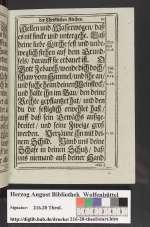 der Christlichen Kirchen
Wellen und Wasserwogen/ daß
es nit sincke und untergehe. Laß
deine liebe Kirche fest und unbe-
weglich stehen auf dem Grund-
felß/ darauff sie erbauet ist. O
Gott Zebaoth/ wende dich doch/
schau vom Himmel/ und sihe an/
und suche heim deinen Weinstock/
und halte ihn im Bau/ den deine
Rechte gepflantzet hat/ und den
du dir festiglich erwehlet hast/
auff daß sein Gewächs außge-
breitet/ und seine Zweige groß
werden. Verzäune ihn mit dei-
nem Schild. Nimb uns deine
Schafe in deinen Schutz/ daß
uns niemand auß deiner Hand
Herzog August Bibliothek Wolfenbüttel
Signatur: 216.28 Theol.
http://diglib.hab.de/drucke/216-28-theol/start.htm